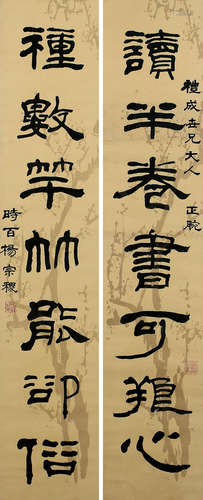 禮成世兄大人 正腕
讀半卷書可心
種數竿竹能卻俗
時百楊宗稷